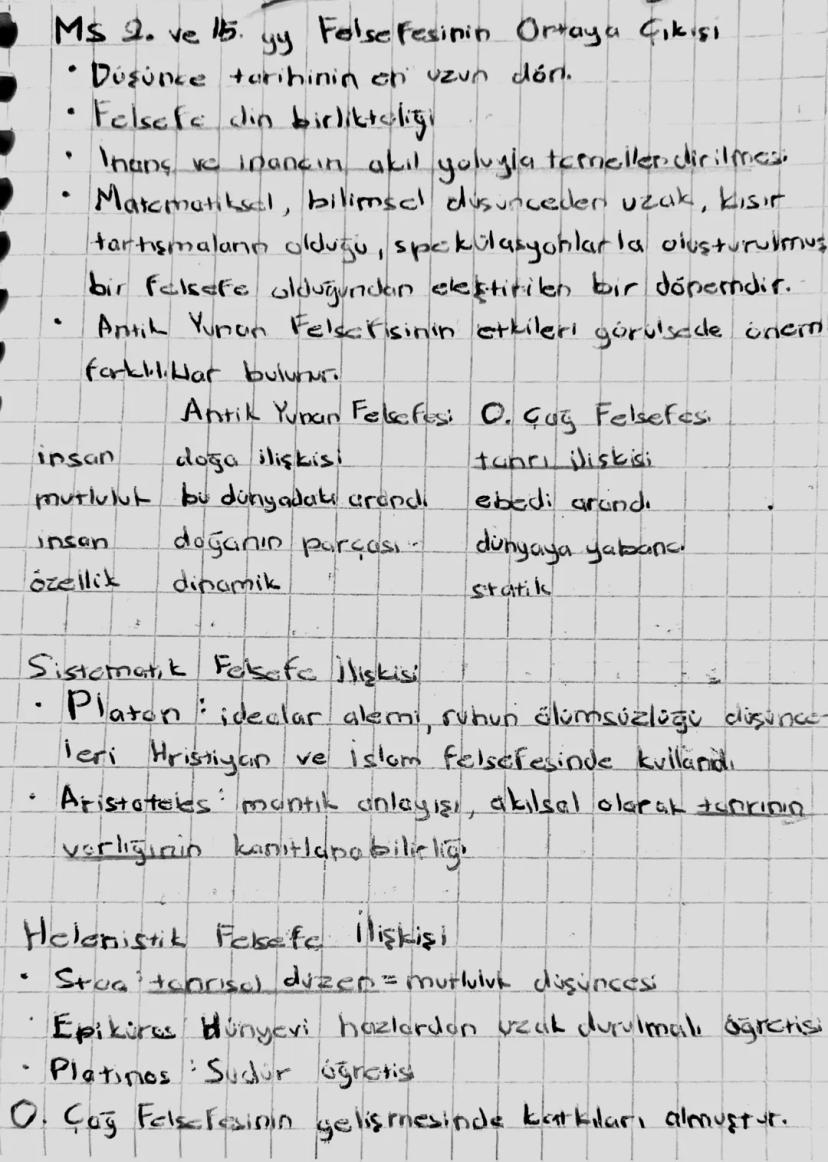 MS 2. ve 15. yy Felsefesinin Ortaya Çıkışı
• Düşünce tarihinin en uzun dön.
• Felsefe din birlikteliği
• İnanç ve inancın akıl yoluyla temellendirilmesi
• Matematiksel, bilimsel düşünceden uzak, kısır
tartışmaların olduğu, spekülasyonlarla oluşturulmuş
bir felsefe olduğundan eleştirilen bir dönemdir.
• Antik Yunan Felsefisinin etkileri görülsede önem
farklılıklar bulunur.
Antik Yunan Felsefesi O. Çağ Felsefesi
insan doğa ilişkisi tanrı ilişkisi
mutluluk bu dünyadaki arandı ebedi arandı
insan doğanın parçası dünyaya yabancı
özellik dinamik statik
Sistematik Felsefe İlişkisi
• Platon : idealar alemi, ruhun ölümsüzlüğü düşünce-
leri Hristiyan ve İslam felsefesinde kullandı
• Aristoteles : mantık anlayışı, akılsal olarak tanrının
varlığının kanıtlanabilirliği
Helenistik Felsefe İlişkisi
• Stoa : tanrısal düzen = mutluluk düşüncesi
• Epiküros Dünyevi hazlardan uzak durulmalı öğretisi
• Platinos : Sudur öğretisi
O. Çağ Felsefesinin gelişmesinde katkıları almuştur.